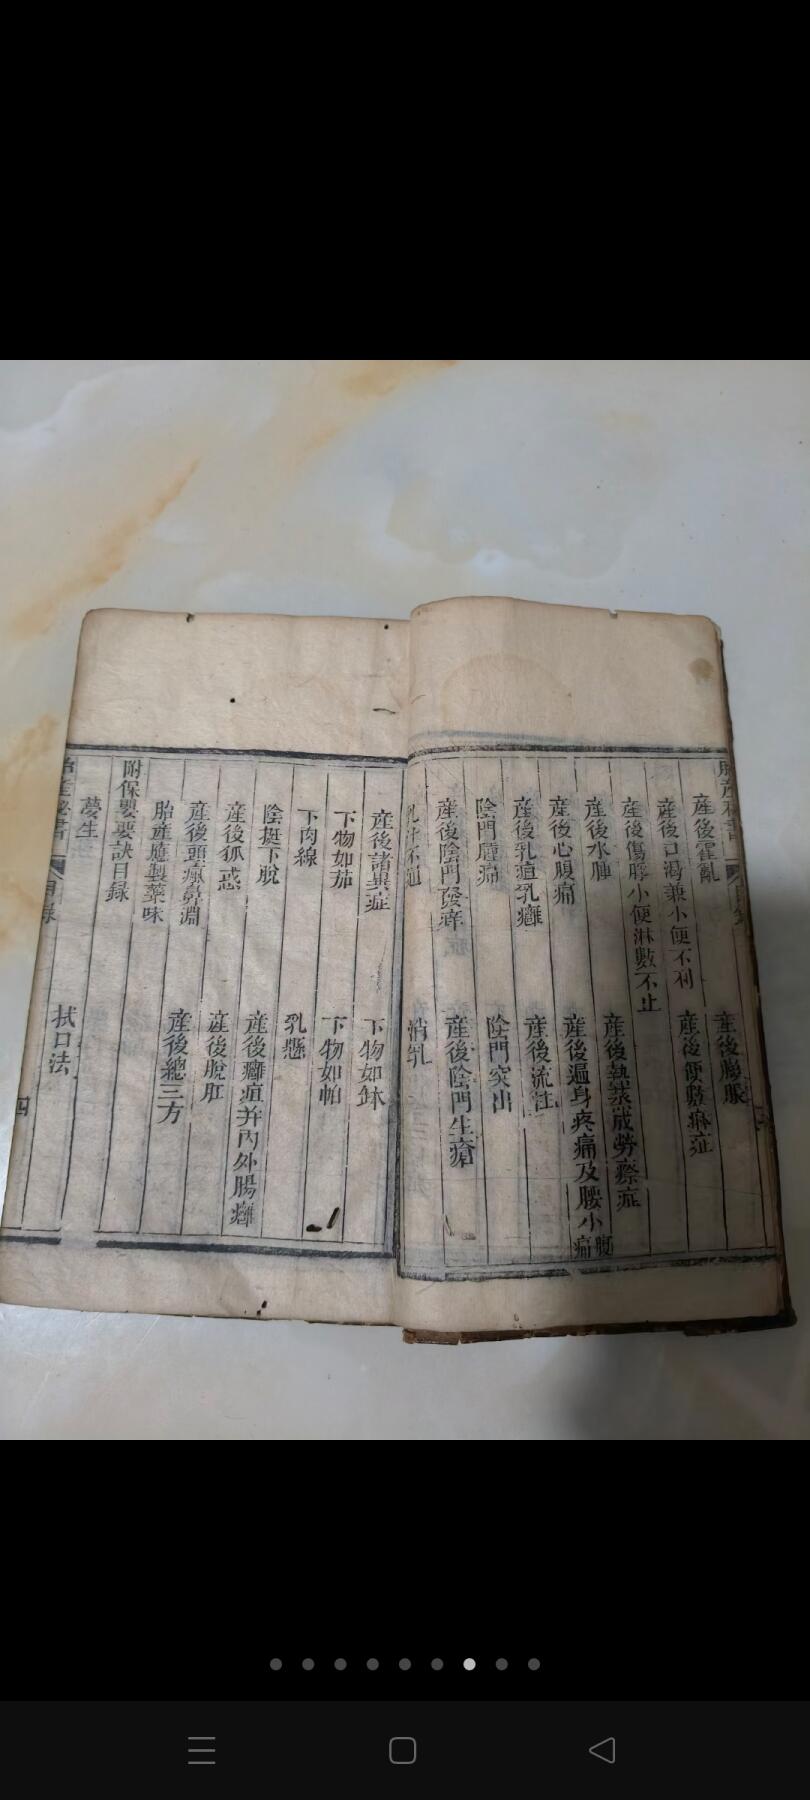 產後霍亂
產後膨脹
產後口渴兼小便不利
產後便數淋症
產後傷脬小便淋數不止
產後水腫
產後熱蒸成勞瘵症
產後心腹痛
產後遍身疼痛及腰小腹痛
產後乳疽乳癰
產後流注
陰門腫痛
陰門突出
產後陰門發痒
產後陰門生瘡
乳汁不通
消乳
產後諸異症
下物如鉢
下物如茄
下物如帕
下肉線
乳懸
陰挺下脫
產後癰疽并內外腸癰
產後狐惑
產後脫肛
產後頭瘋鼻淵
產後總三方
胎產應製藥味
附保嬰要訣目錄
夢生
拭口法
胎產秘書
目錄
四